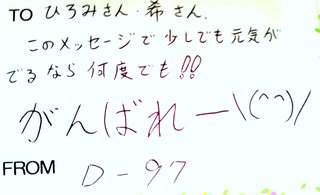 TO ひろみさん・希さん.
このメッセージで少しでも元気が
でるなら何度でも!!
がんばれー\(^^)/
FROM D-97